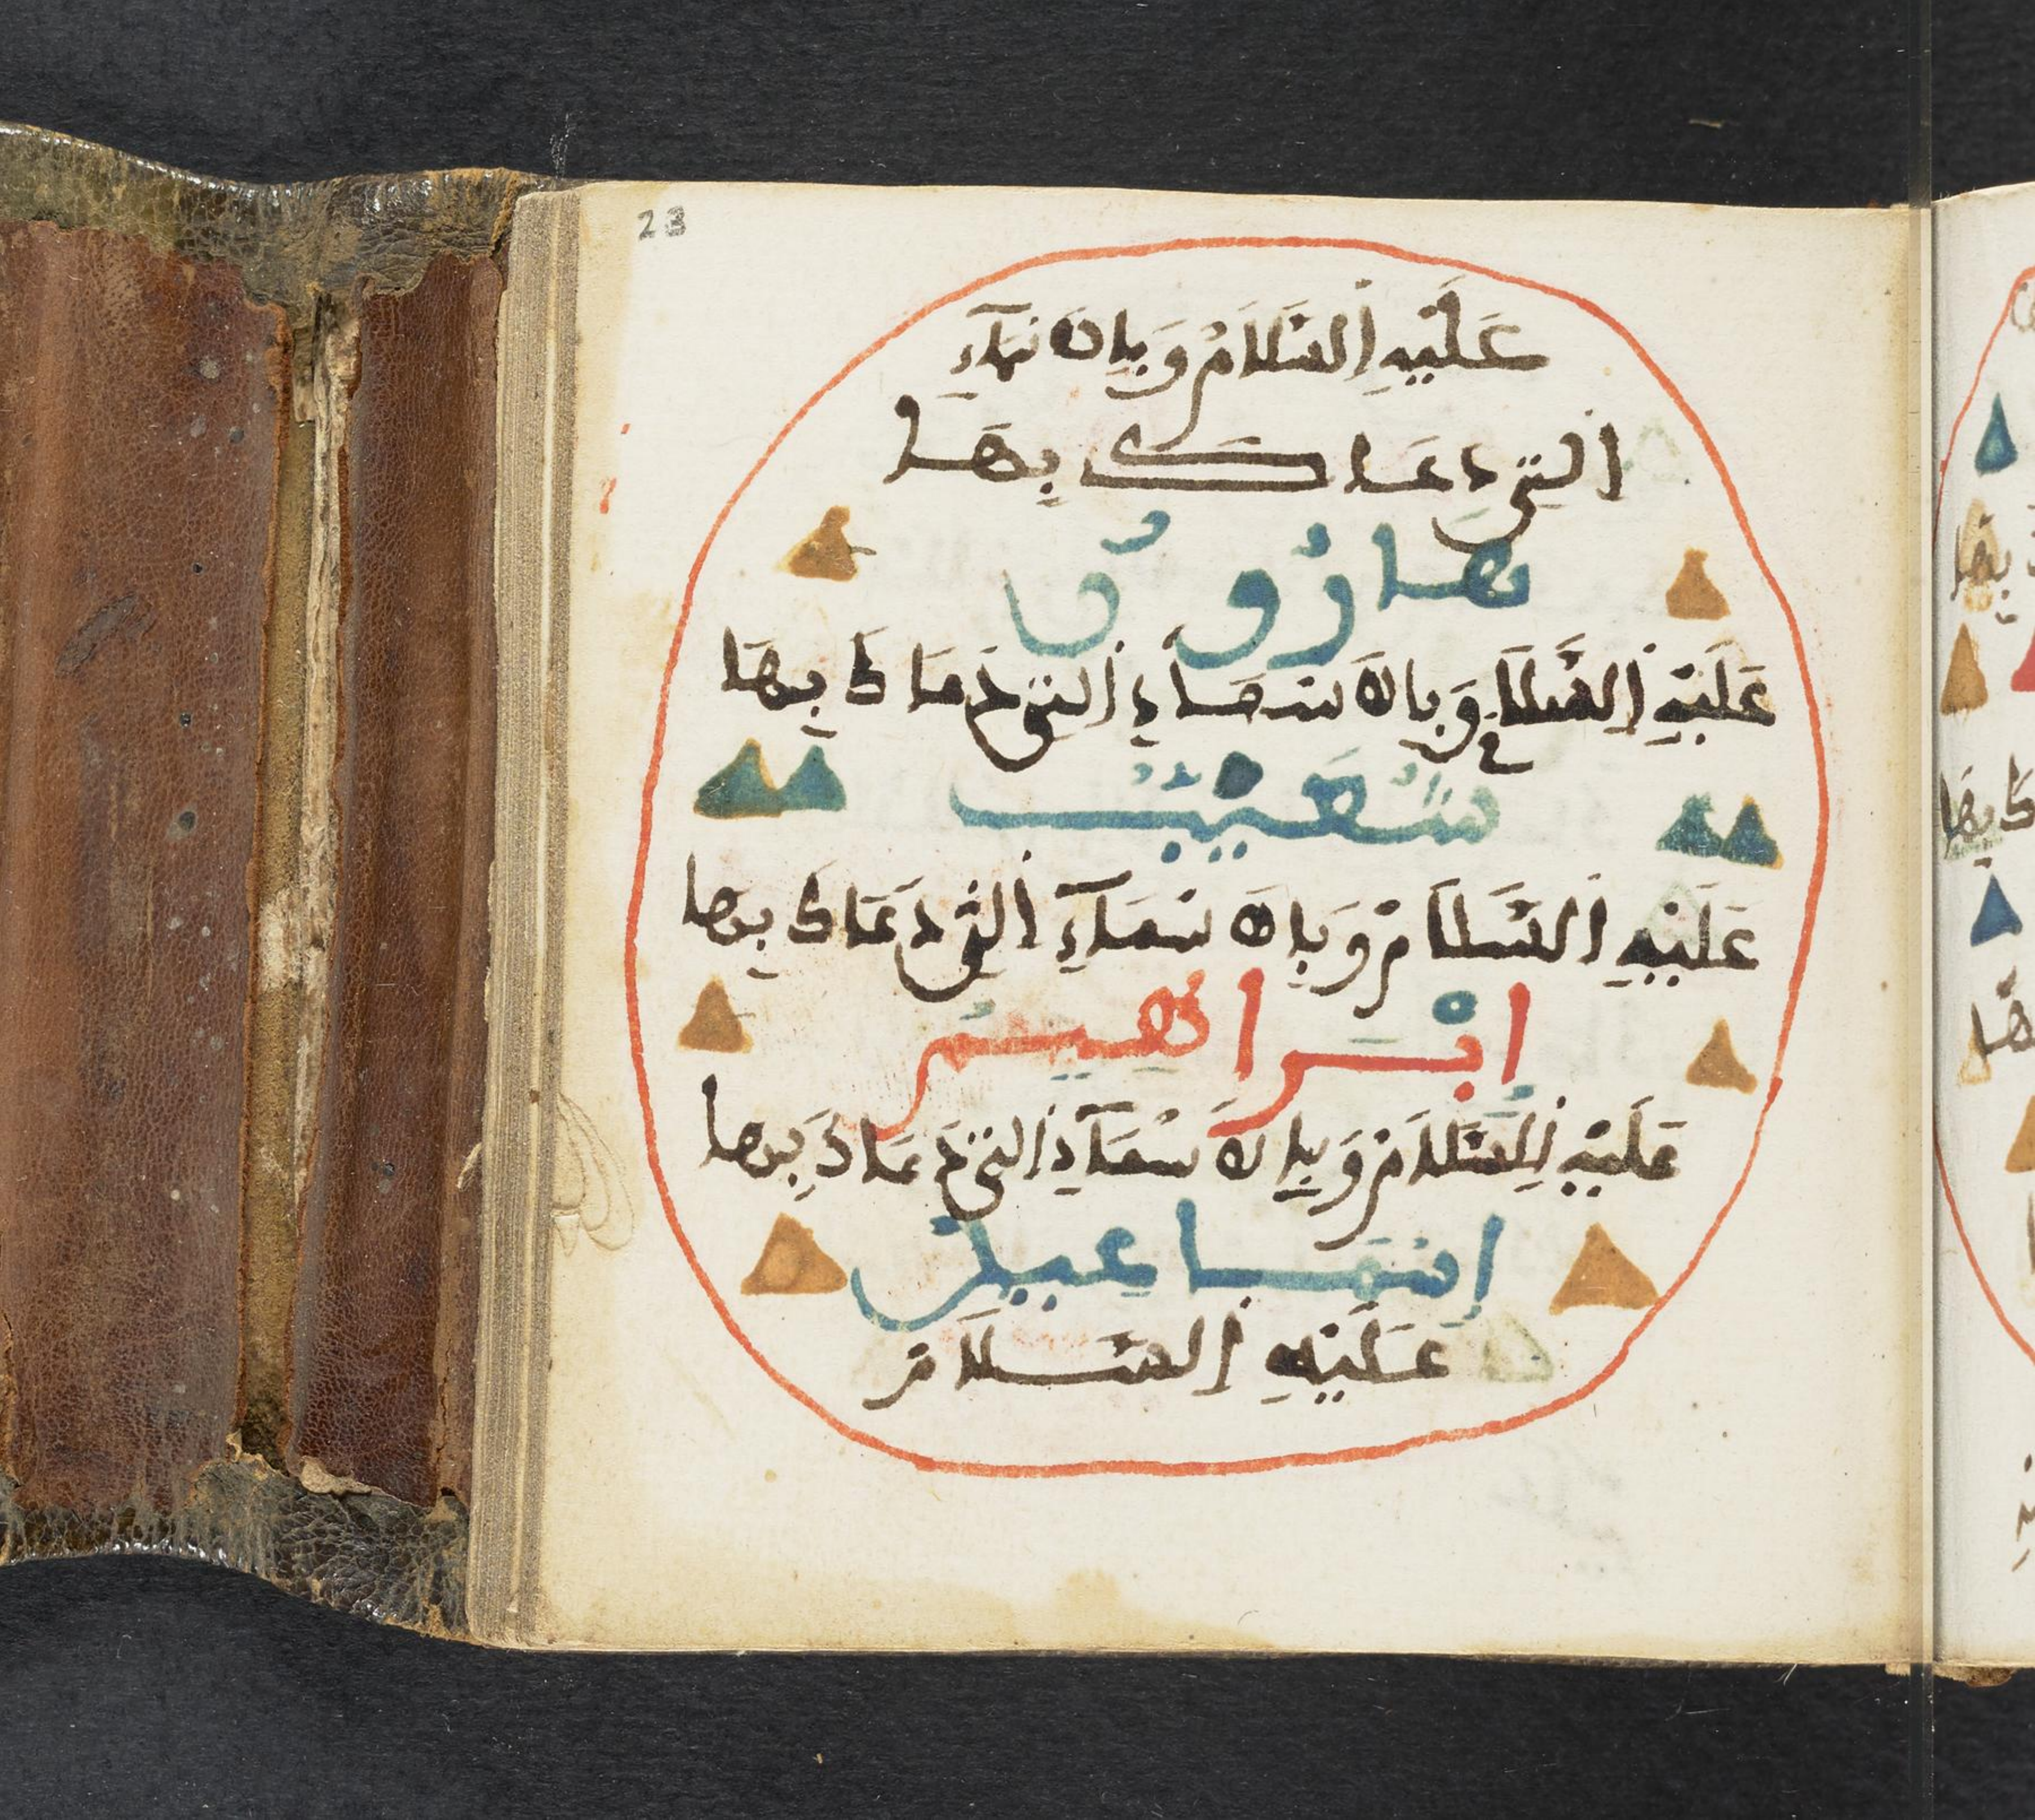 23
عَلَيْهِ السَّلَامُ وَبِالاسْمَآءِ
التِي دَعَاكَ بِهَا
هَارُونُ
عَلَيْهِ السَّلَامُ وَبِالَاسْمَآءِ التِي دَعَاكَ بِهَا
شُعَيْبٌ
عَلَيْهِ السَّلَامُ وَبِالَاسْمَآءِ التِي دَعَاكَ بِهَا
ابْرَاهِيمُ
عَلَيْهِ السَّلَامُ وَبِالَاسْمَآءِ التِي دَعَاكَ بِهَا
إِسْمَاعِيلُ
عَلَيْهِ السَّلَامُ